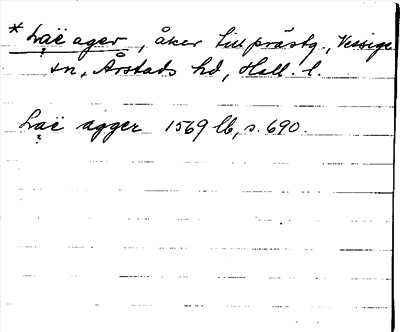 * Laë ager, åker till prästg., Vessige
sn, Årstads hd, Hall. l.
Laë agger 1569 lb, s. 690.